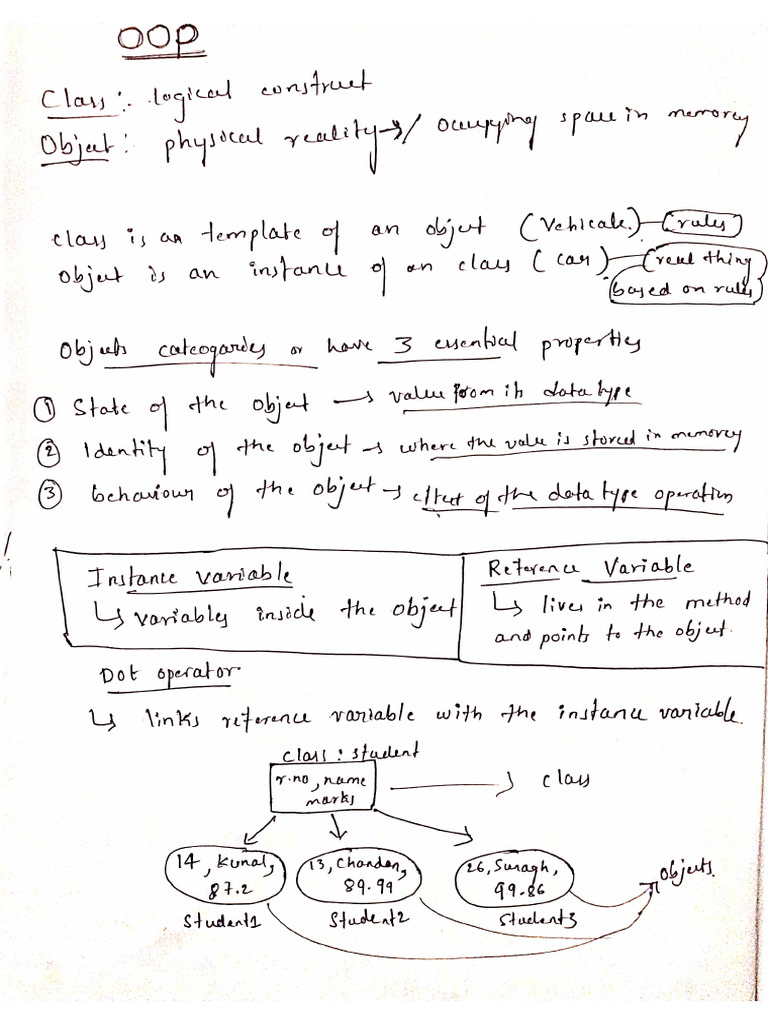 OOP
Class :- logical construct
Object : physical reality → / occupying space in memory
class is an template of an object (Vehicale) — (rules)
object is an instance of an class (car) — (real thing
based on rules)
Objects categories or have 3 essential properties
① State of the object → value from its data type
② Identity of the object → where the value is stored in memory
③ behaviour of the object → effect of the data type operation
Instance variable
↳ variables inside the object
Reference Variable
↳ lives in the method
and points to the object.
Dot operator
↳ links reference variable with the instance variable.
class : student
r.no, name
marks
→ class
14, Kunal,
87.2
13, Chandan,
89.99
26, Suragh,
99.86
objects.
Student1
Student2
Student3